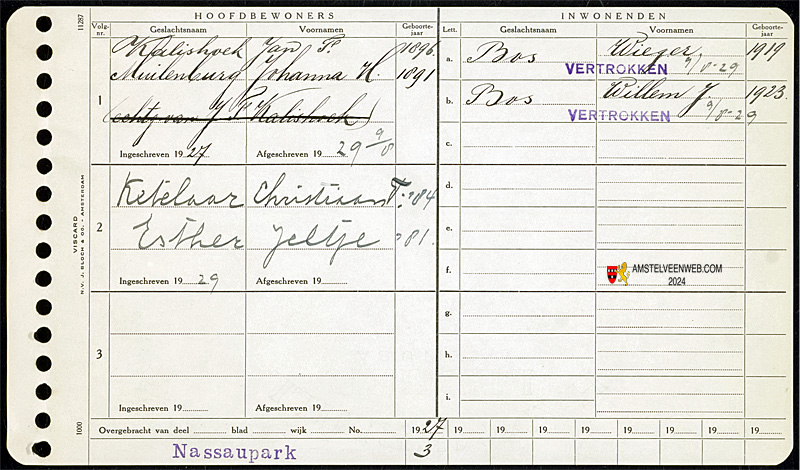 HOOFDBEWONERS
Volg-nr. Geslachtsnaam Voornamen Geboorte-jaar
1 Kalishoek Jan P. 1896
Muilenburg Johanna H. 1891
(echtg van J P Kalishoek)
Ingeschreven 1927 Afgeschreven 19 29 9/8
2 Ketelaar Christiaan T. '84
Esther Jeltje '81.
Ingeschreven 19 29 Afgeschreven 19
3
Ingeschreven 19 Afgeschreven 19
INWONENDEN
Lett. Geslachtsnaam Voornamen Geboorte-jaar
a. Bos Wieger 1919
VERTROKKEN 9/8-29
b. Bos Willem J. 1923
VERTROKKEN 9/8-29
c.
d.
e.
f. AMSTELVEENWEB.COM
2024
g.
h.
i.
Overgebracht van deel blad wijk No. 1927 19 19 19 19 19 19 19 19
Nassaupark 3
11287
VISCARD
N.V. J. BLOCH & CO. - AMSTERDAM
1000